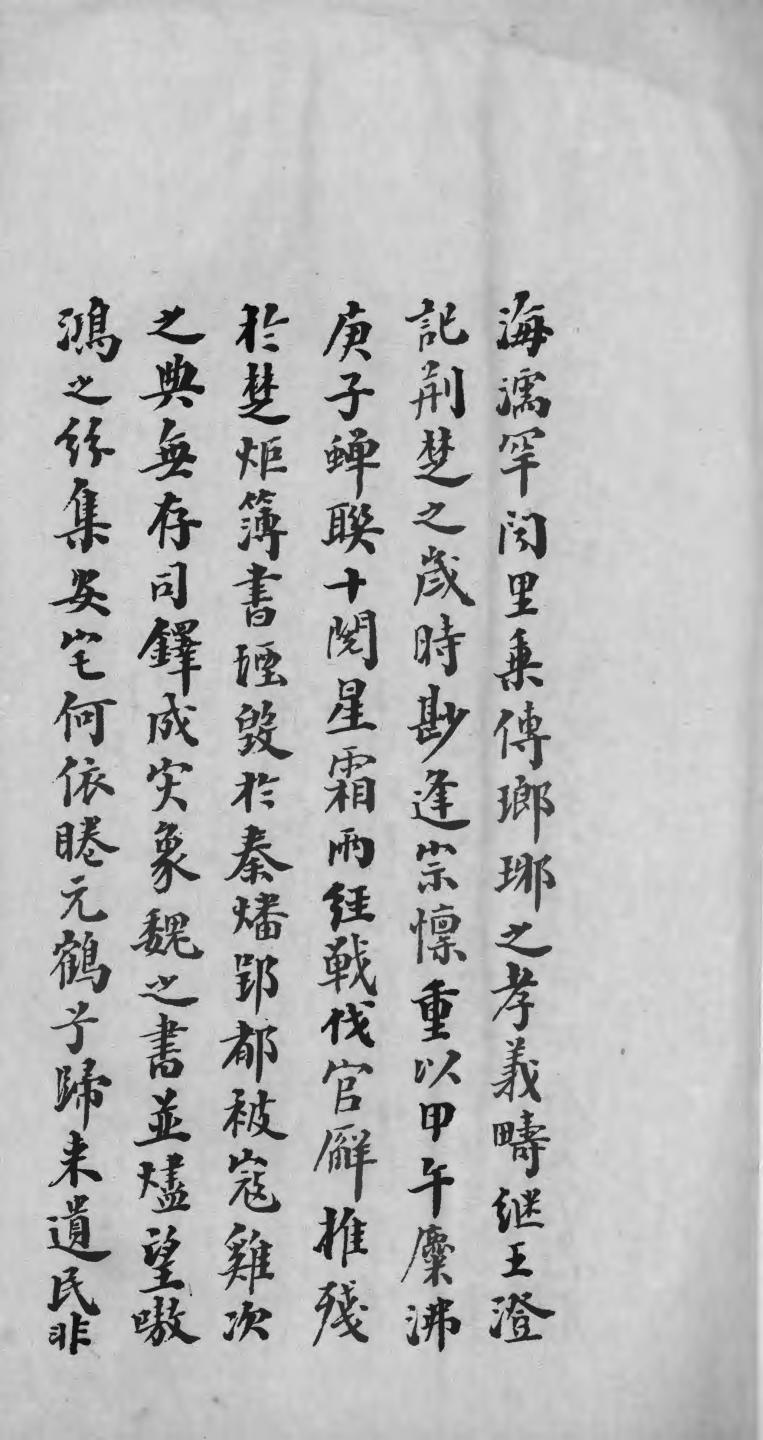 海濡罕閲里乗傳瑯琊之孝義疇繼王澄
記荆楚之歲時尠逢宗懍重以甲午麋沸
庚子蟬聯十閱星霜兩經戰伐官廨摧殘
於楚炬簿書堙毀於秦燔郢都被寇雞次
之典無存司鐸成灾象魏之書並燼望嗷
鴻之紛集安宅何依睠元鶴兮歸來遺民非